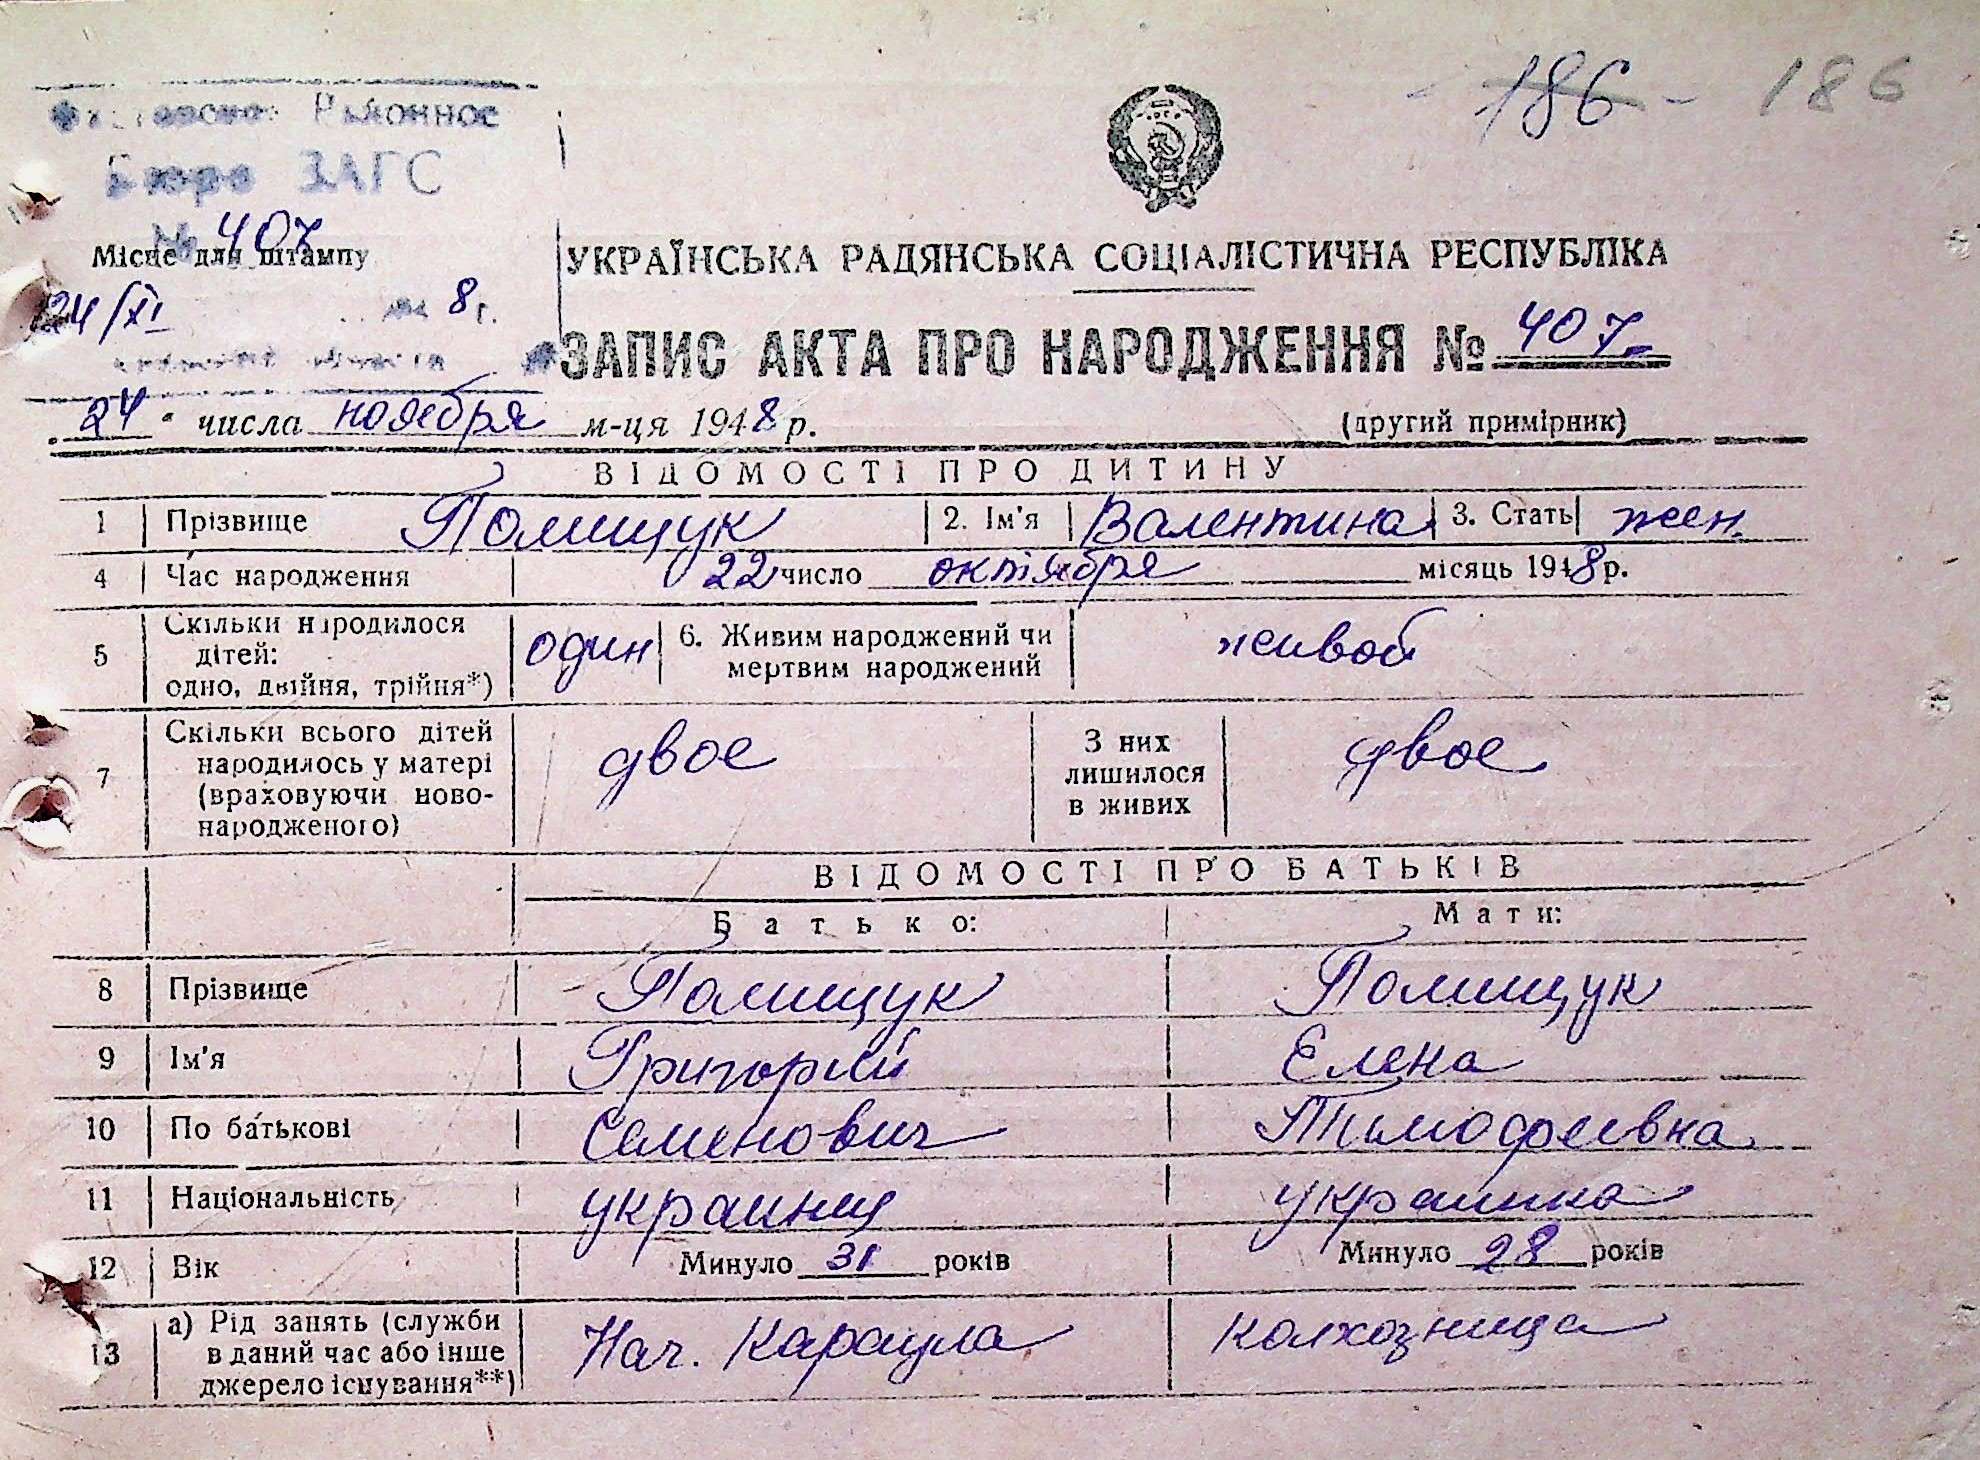 186 - 186
Районное
Бюро ЗАГС
№ 407
Місце для штампу
24/XI 8 г.
УКРАЇНСЬКА РАДЯНСЬКА СОЦІАЛІСТИЧНА РЕСПУБЛІКА
ЗАПИС АКТА ПРО НАРОДЖЕННЯ № 407
24 числа ноября м-ця 1948 р. (другий примірник)
ВІДОМОСТІ ПРО ДИТИНУ
1 Прізвище Полищук 2. Ім'я Валентина 3. Стать жен.
4 Час народження 22 число октября місяць 1948 р.
5 Скільки народилося дітей: одно, двійня, трійня*) один 6. Живим народжений чи мертвим народжений живой
7 Скільки всього дітей народилось у матері (враховуючи новонародженого) двое З них лишилося в живих двое
ВІДОМОСТІ ПРО БАТЬКІВ
Батько: Мати:
8 Прізвище Полищук Полищук
9 Ім'я Григорий Елена
10 По батькові Семенович Тимофеевна
11 Національність украинец украинка
12 Вік Минуло 31 років Минуло 28 років
13 а) Рід занять (служби в даний час або інше джерело існування**) Нач. Караула колхозница